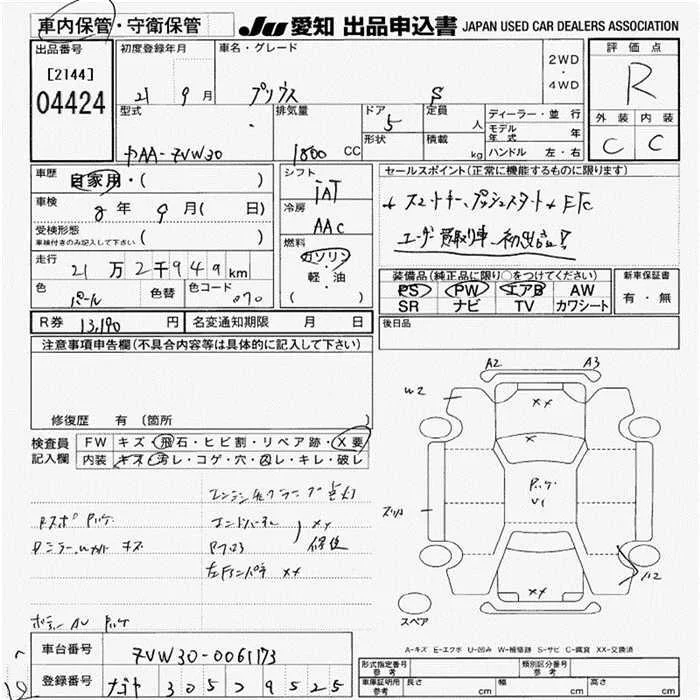 車内保管・守衛保管
JU 愛知 出品申込書 JAPAN USED CAR DEALERS ASSOCIATION
出品番号
[2144]
04424
初度登録年月
21 9月
車名・グレード
プリウス S
2WD
・
4WD
評価点
R
外装 内装
C C
型式
DAA-ZVW30
排気量
1800 CC
ドア
5
形状
定員
人
積載
kg
ディーラー・並行
モデル年式 年
ハンドル 左・右
車歴
自家用・( )
車検
8年 9月( 日)
受検形態
車検付きのみ記入して下さい ( )
走行
21万2千949km
色
パール
色替
色コード
070
シフト
IAT
冷房
AAC
燃料
ガソリン
・
軽・油
( )
セールスポイント(正常に機能するものに限ります)
スマートキー、プッシュスタート ETC
ユーザー買取車 初出品!
装備品(純正品に限り○をつけてください)
PS PW エアB AW
SR ナビ TV カワシート
新車保証書
有・無
R券 13,190 円
名変通知期限 月 日
後日品
注意事項申告欄(不具合内容等は具体的に記入して下さい)
修復歴 有 (箇所 )
検査員記入欄
FW キズ・飛石・ヒビ割・リペア跡・X要
内装 キズ・汚レ・コゲ・穴・凶レ・キレ・破レ
エンジンチェックランプ点灯
コアサポ XX
修復
キズ
A2 A3
W2
XX
X
U1
XX
スペア
A-キズ E-エクボ U-凹み W-補修跡 S-サビ C-腐食 XX-交換済
車台番号
ZVW30-0061173
登録番号
305 9525
形式指定番号
参考
類別区分番号
参考
車庫証明用
参考
長さ cm
幅 cm
高さ cm